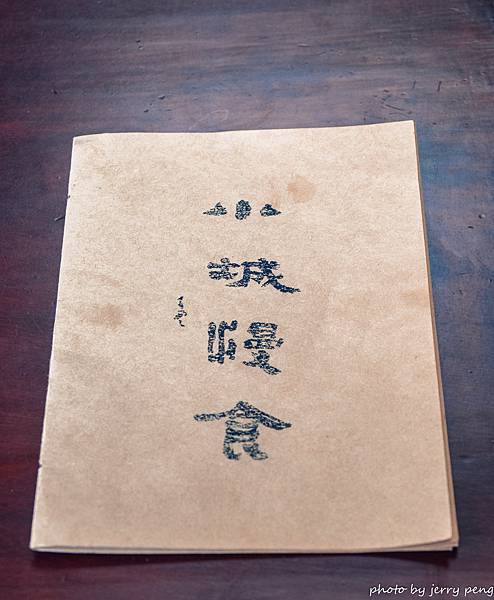 小城慢食
photo by jerry peng